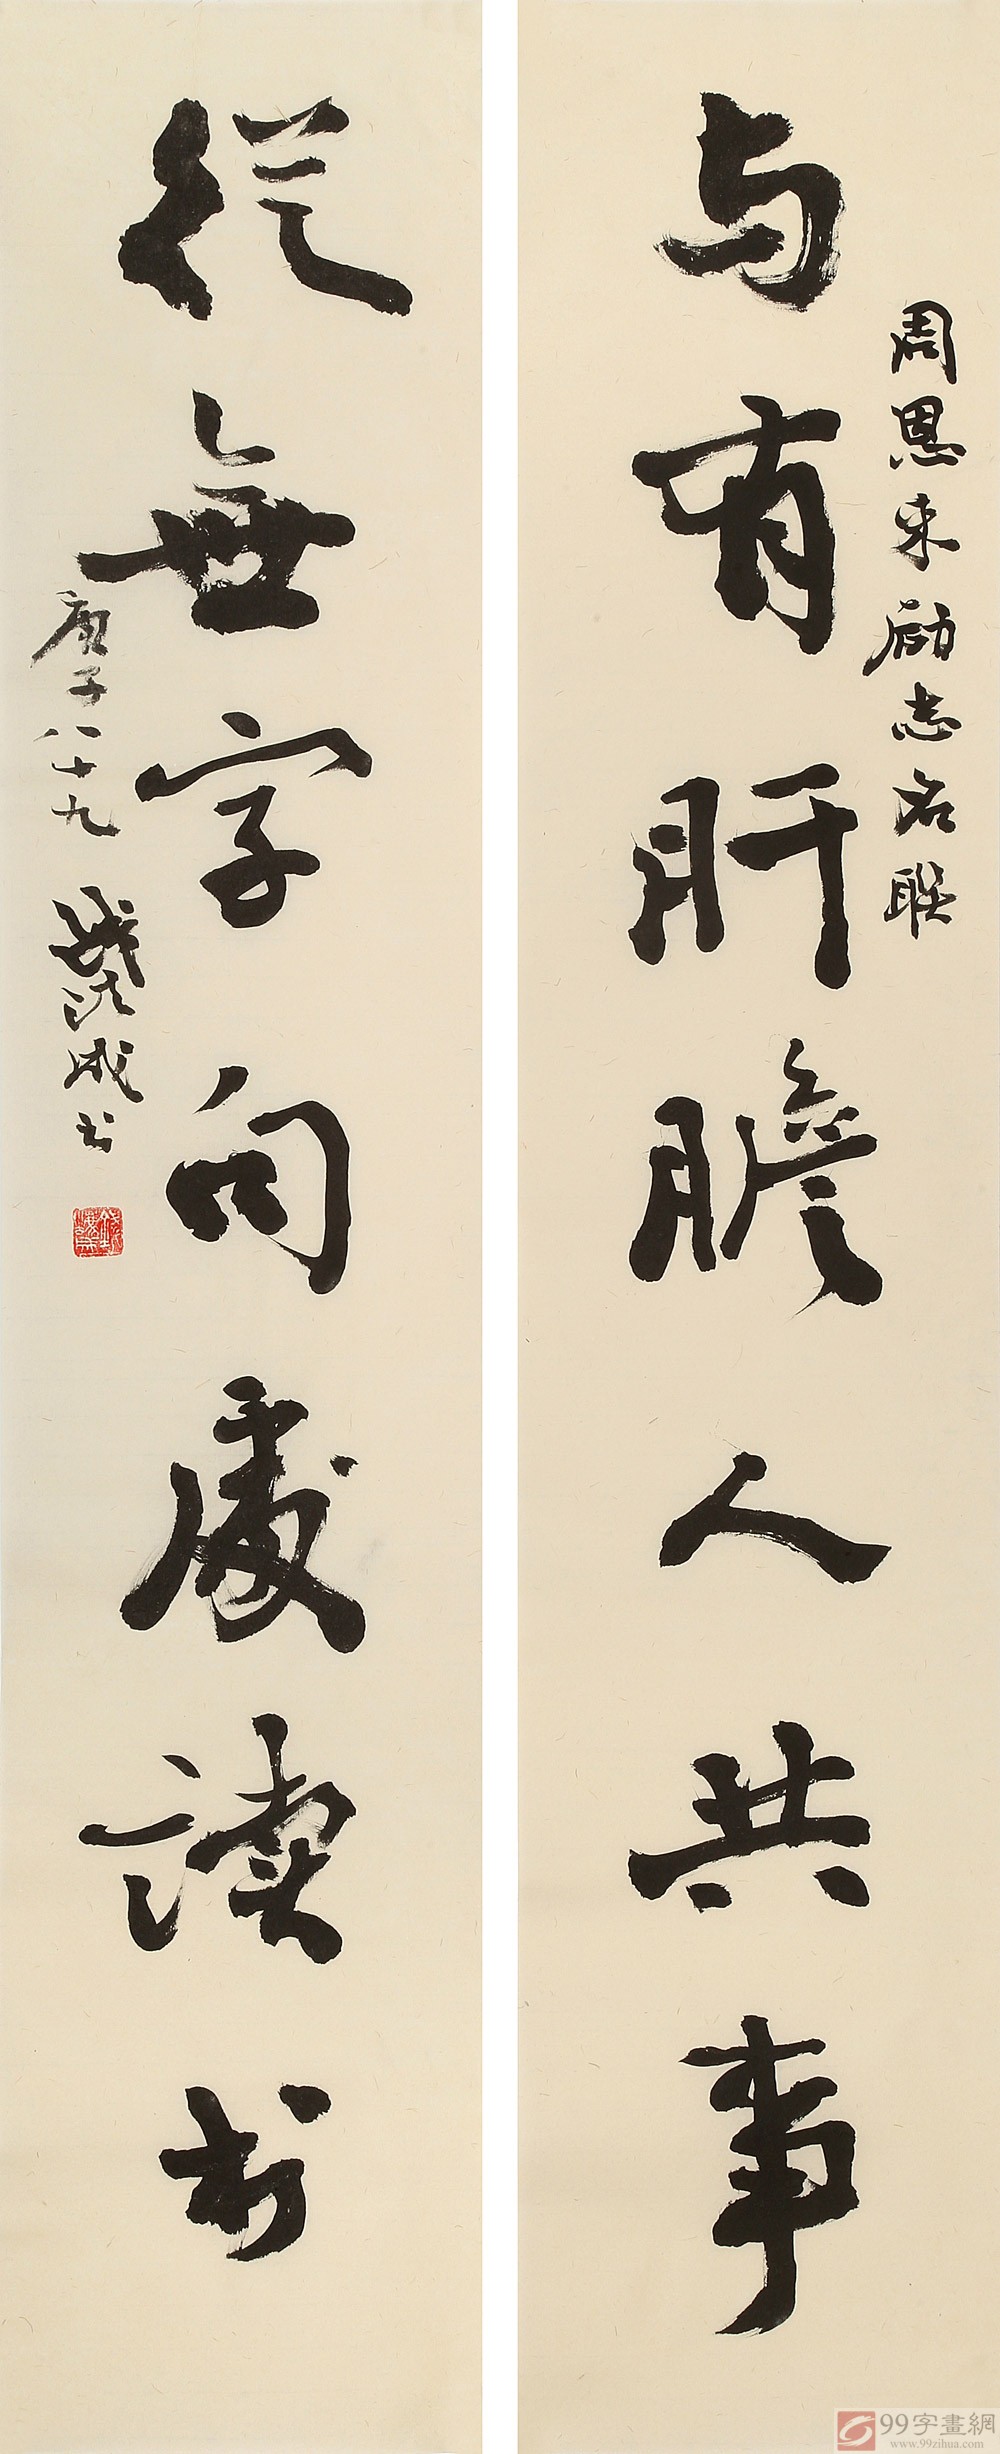 与有肝膽人共事
周恩来励志名联
從無字句處讀书
庚子八十九
成书
99字畫網
www.99zihua.com